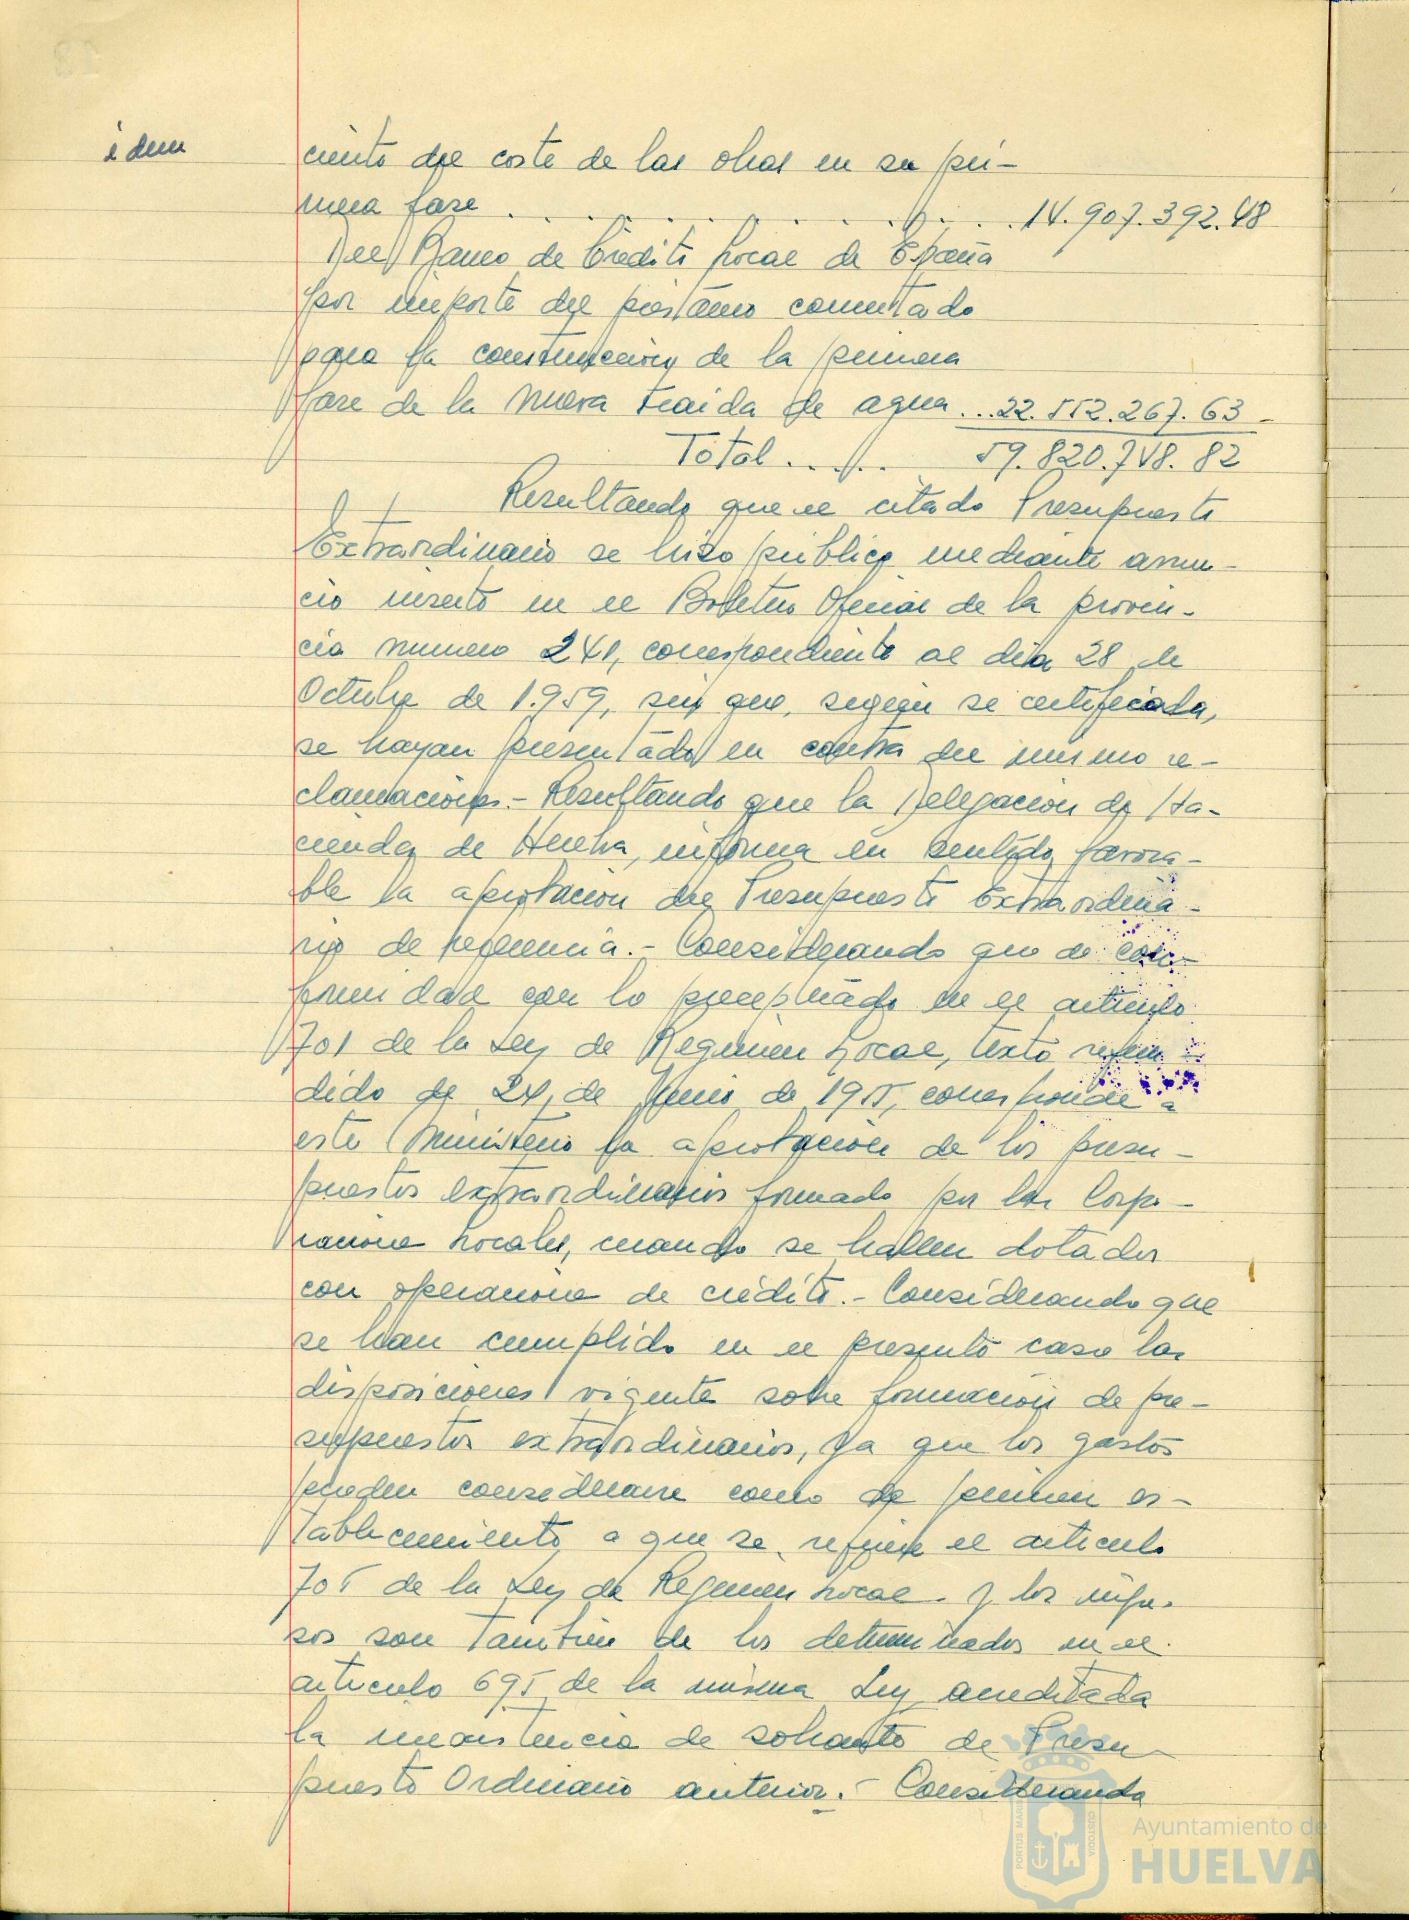 idem
ciento del coste de las obras en su pri-
mera fase . . . . . . . . . . . . 14.907.392.48
Del Banco de Crédito Local de España
por importe del préstamo concertado
para la construcción de la primera
fase de la nueva traida de agua ... 22.552.267.63
Total ..... 59.820.748.82
Resultando que el citado Presupuesto
Extraordinario se hizo público mediante anun-
cio inserto en el Boletin Oficial de la provin-
cia numero 241, correspondiente al dia 28 de
Octubre de 1.959, sin que, segun se certificada,
se hayan presentado en contra del mismo re-
clamaciones.- Resultando que la Delegacion de Ha-
cienda de Huelva, informa en sentido favora-
ble la aprobacion del Presupuesto Extraordina-
rio de referencia.- Considerando que de con-
formidad con lo preceptuado en el articulo
701 de la Ley de Regimen Local, texto refun-
dido de 24, de Junio de 1955, corresponde a
este Ministerio la aprobación de los presu-
puestos extraordinarios formado por las Corpo-
racione Locales, cuando se hallen dotados
con operacione de crédito.- Considerando que
se han cumplido en el presente caso las
disposiciones vigente sobre formación de pre-
supuestos extraordinarios, ya que los gastos
pueden considerarse como de primer es-
tablecimiento a que se refiere el articulo
705 de la Ley de Regimen Local. y los ingre-
sos son tambien de los determinados en el
articulo 695 de la misma Ley acreditada
la inexistencia de sobrante de Presu-
puesto Ordinario anterior.- Considerando
PORTUS MARIS
CUSTODIA
Ayuntamiento de
HUELVA